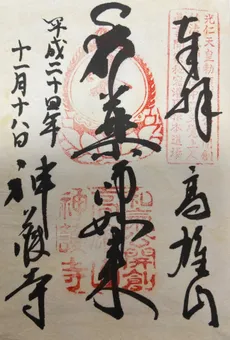 奉拝
高雄山
薬師如来
平成二十四年
十一月十八日
神護寺
光仁天皇勅
和気公開創
神護寺